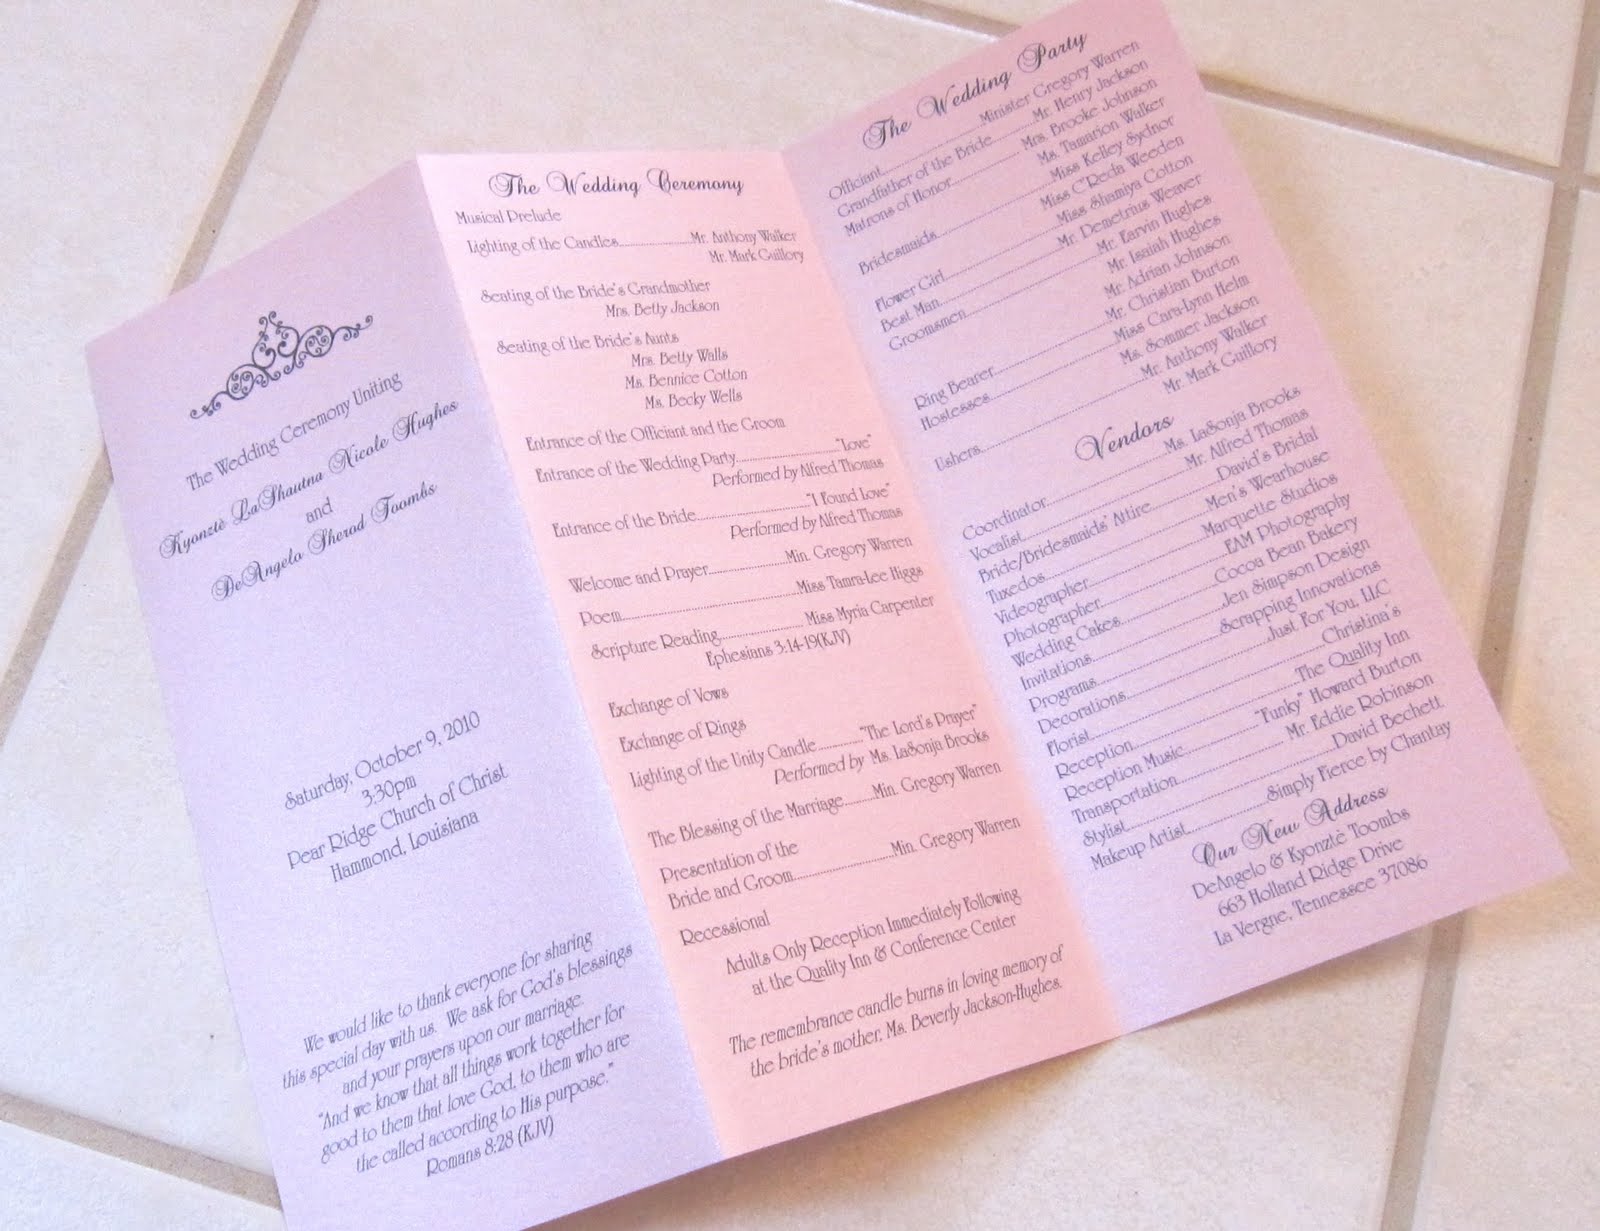 The Wedding Ceremony Uniting
Kyonztè LaShautna Nicole Hughes
and
DeAngelo Sherod Toombs
Saturday, October 9, 2010
3:30pm
Pear Ridge Church of Christ
Hammond, Louisiana
We would like to thank everyone for sharing
this special day with us. We ask for God's blessings
and your prayers upon our marriage.
"And we know that all things work together for
good to them that love God, to them who are
the called according to His purpose."
Romans 8:28 (KJV)
The Wedding Ceremony
Musical Prelude
Lighting of the Candles..........Mr. Anthony Walker
Mr. Mark Guillory
Seating of the Bride's Grandmother
Mrs. Betty Jackson
Seating of the Bride's Aunts
Mrs. Betty Walls
Ms. Bennice Cotton
Ms. Becky Wells
Entrance of the Officiant and the Groom
Entrance of the Wedding Party..........."Love"
Performed by Alfred Thomas
Entrance of the Bride..........."I Found Love"
Performed by Alfred Thomas
Welcome and Prayer..........Min. Gregory Warren
Poem..........Miss Tamra-Lee Higgs
Scripture Reading..........Miss Myria Carpenter
Ephesians 3:14-19(KJV)
Exchange of Vows
Exchange of Rings
Lighting of the Unity Candle.........."The Lord's Prayer"
Performed by Ms. LaSonja Brooks
The Blessing of the Marriage..........Min. Gregory Warren
Presentation of the
Bride and Groom..........Min. Gregory Warren
Recessional
Adults Only Reception Immediately Following
at the Quality Inn & Conference Center
The remembrance candle burns in loving memory of
the bride's mother, Ms. Beverly Jackson-Hughes.
The Wedding Party
Officiant..........Minister Gregory Warren
Grandfather of the Bride..........Mr. Henry Jackson
Matrons of Honor..........Mrs. Brooke Johnson
Ms. Tamarion Walker
Bridesmaids..........Miss Kelley Sydnor
Miss C'Reda Weeden
Miss Shamiya Cotton
Flower Girl
Best Man..........Mr. Demetrius Weaver
Groomsmen..........Mr. Earvin Hughes
Mr. Isaiah Hughes
Mr. Adrian Johnson
Ring Bearer..........Mr. Christian Burton
Hostesses..........Miss Cara-Lynn Helm
Ms. Sommer Jackson
Ushers..........Mr. Anthony Walker
Mr. Mark Guillory
Vendors
Coordinator..........Ms. LaSonja Brooks
Vocalist..........Mr. Alfred Thomas
Bride/Bridesmaids' Attire..........David's Bridal
Tuxedos..........Men's Wearhouse
Videographer..........Marquette Studios
Photographer..........EAM Photography
Wedding Cakes..........Cocoa Bean Bakery
Invitations..........Jen Simpson Design
Programs..........Scrapping Innovations
Decorations..........Just For You, LLC
Florist..........Christina's
Reception..........The Quality Inn
Reception Music.........."Funky" Howard Burton
Transportation..........Mr. Eddie Robinson
Stylist..........David Bechett
Makeup Artist..........Simply Fierce by Chantay
Our New Address
DeAngelo & Kyonztè Toombs
663 Holland Ridge Drive
La Vergne, Tennessee 37086